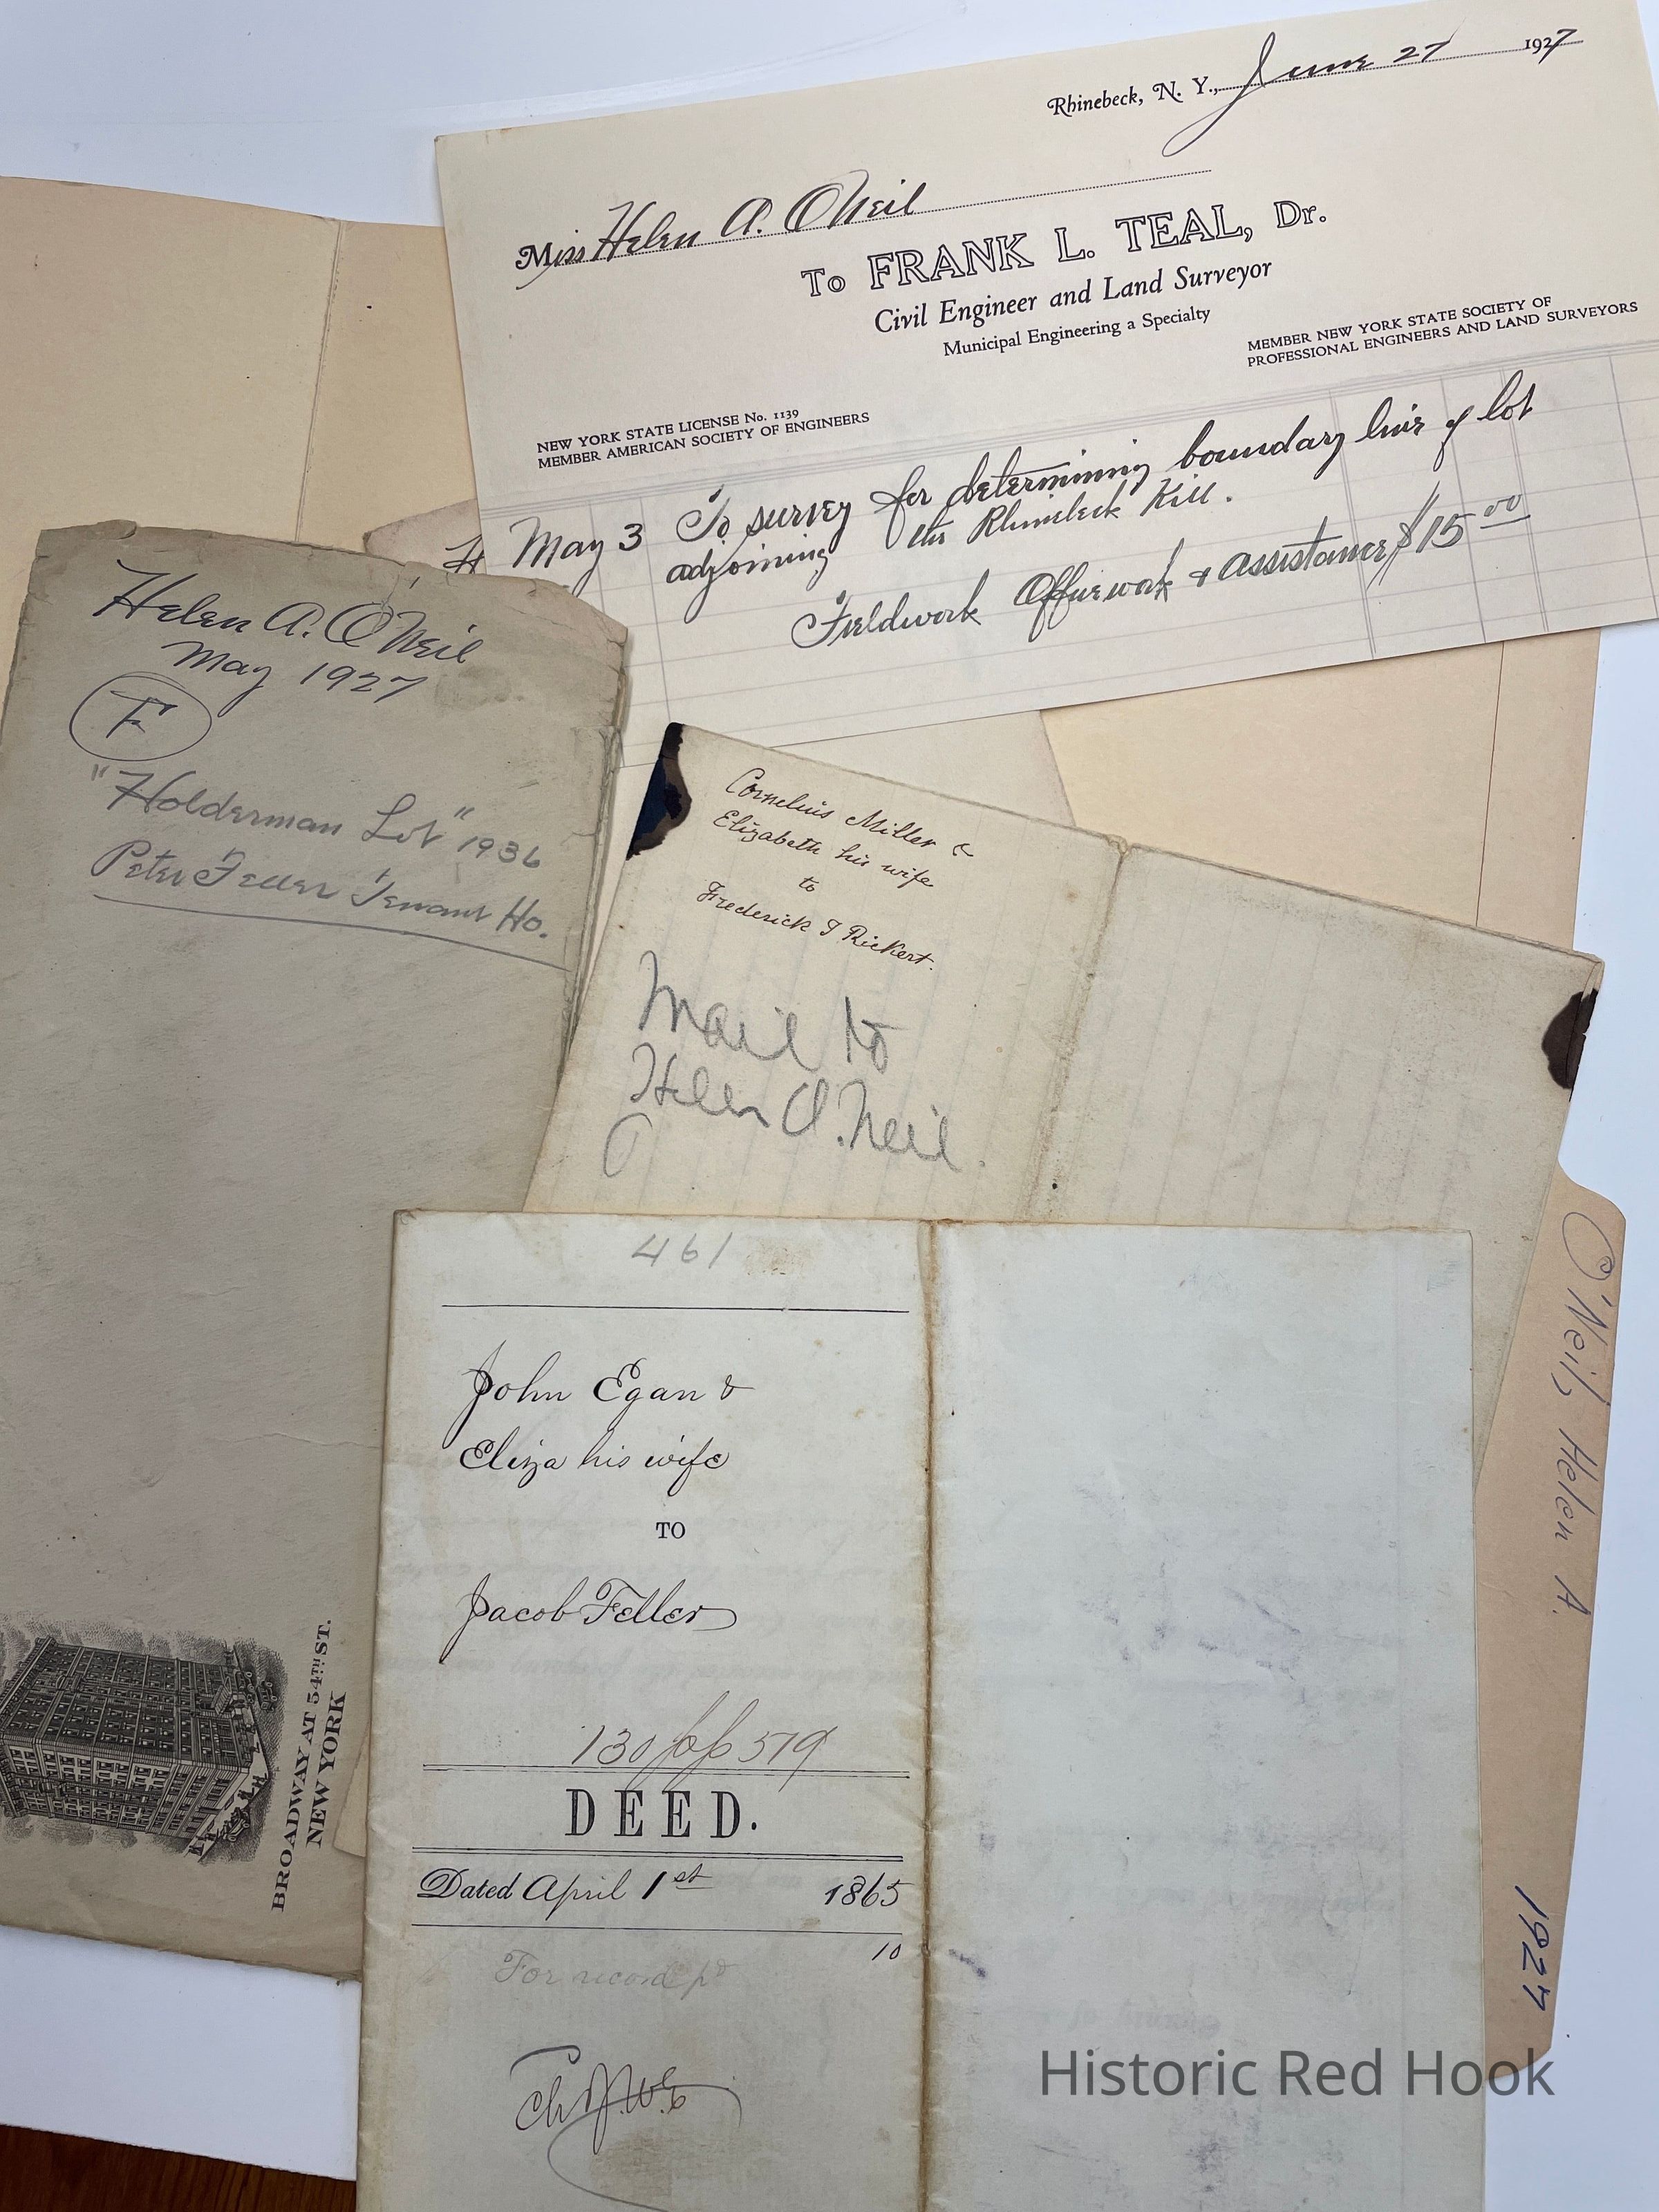 Rhinebeck, N. Y., June 27 1927
Miss Helen A. O'Neil
To FRANK L. TEAL, Dr.
Civil Engineer and Land Surveyor
Municipal Engineering a Specialty
MEMBER NEW YORK STATE SOCIETY OF
PROFESSIONAL ENGINEERS AND LAND SURVEYORS
NEW YORK STATE LICENSE No. 1139
MEMBER AMERICAN SOCIETY OF ENGINEERS
May 3 To survey for determining boundary line of lot
adjoining the Rhinebeck Kill.
Fieldwork Officework & assistance $15 00
H
Helen A. O'Neil
May 1927
F
"Holderman Lot" 1936
Peter Feller Tenant Ho.
BROADWAY AT 54TH ST.
NEW YORK
Cornelius Miller &
Elizabeth his wife
to
Frederick I Rickert.
Mail to
Helen O.Neil.
461
John Egan &
Eliza his wife
TO
Jacob Feller
130 pp 579
DEED.
Dated April 1st 1865
10
For record pd
O'Neil, Helen A.
1927
Historic Red Hook